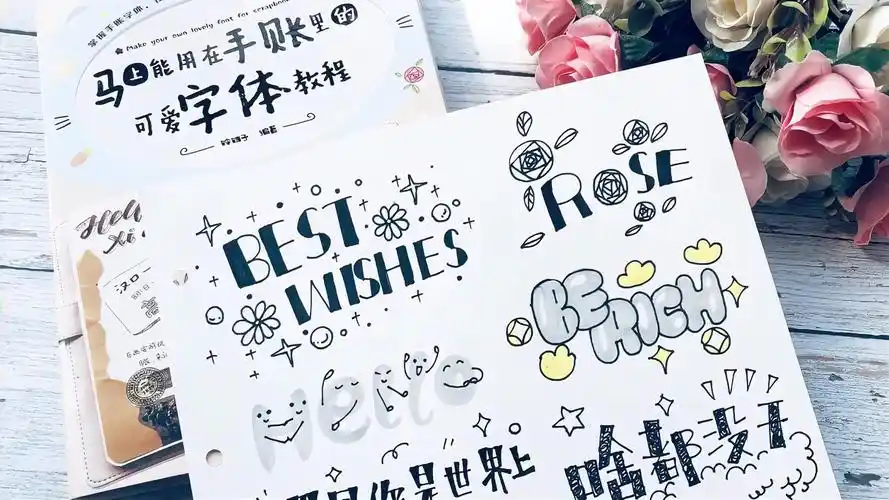 Make your own lovely font for scrapbook
马上能用在手账里的
可爱字体教程
编著
BEST
WISHES
ROSE
BE
RICH
Hello
你是世界上
啥都没干